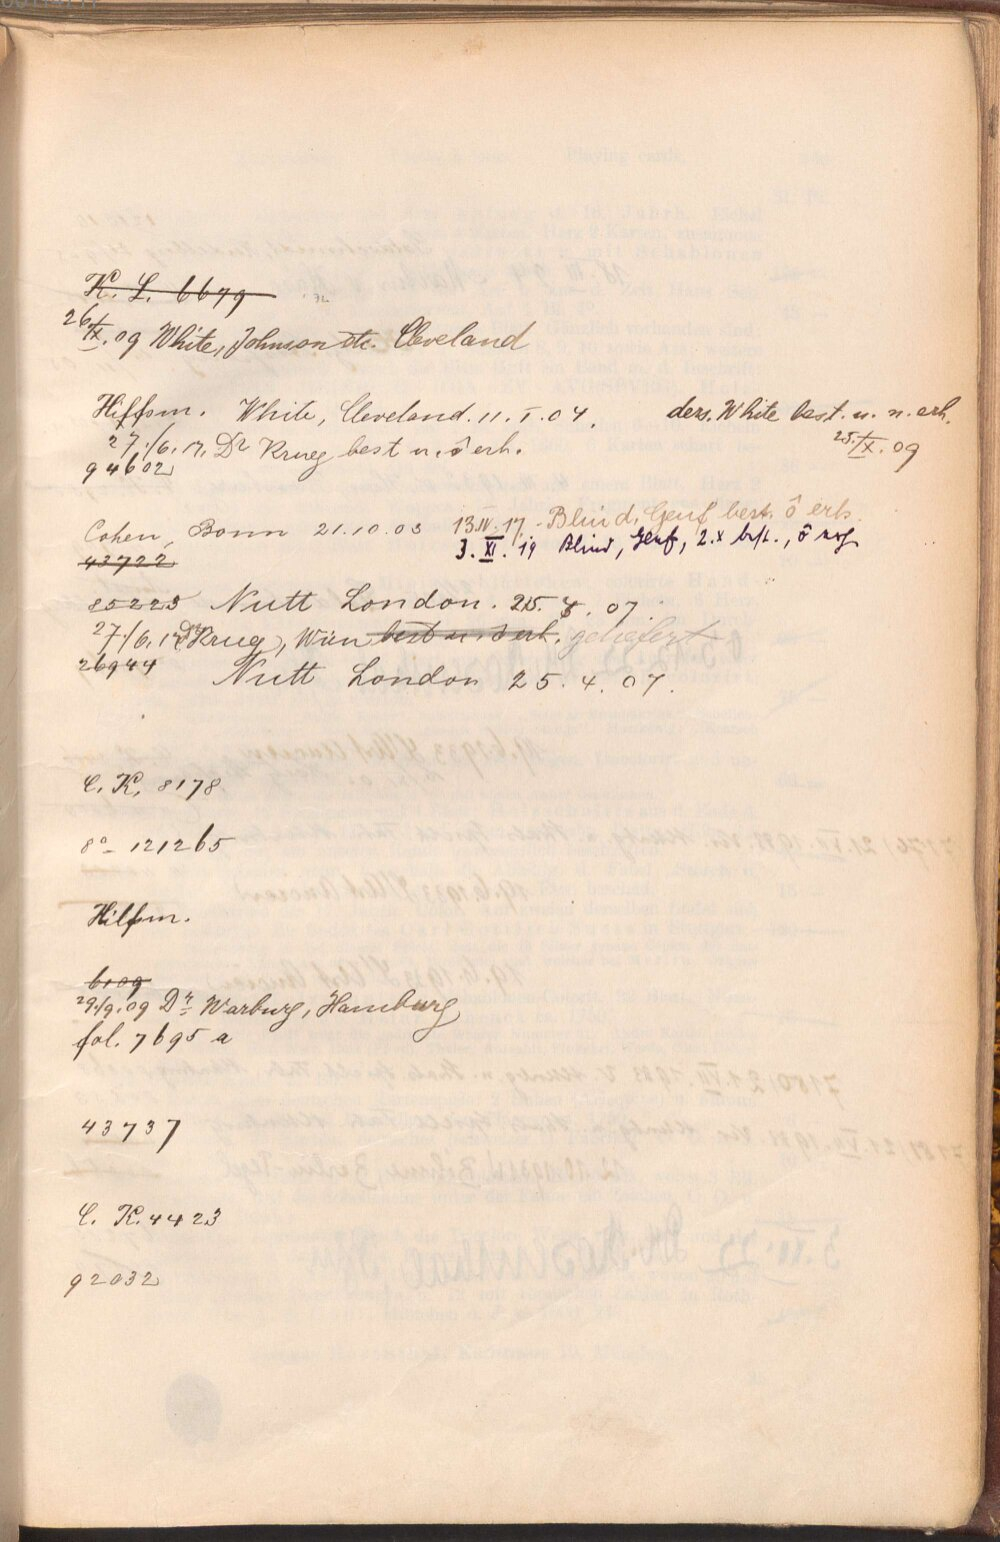 K. L. 6679
26/IX. 09 White, Johnson etc. Cleveland
Hilfsm. White, Cleveland. 11. I. 04. ders. White best. u. n. erh.
25./IX. 09
27./6. 17. Dr Krueg best u. ô erh.
94602
Cohen, Bonn 21.10.03 13.IV.17. Blind, Genf best. ô erh.
43722 3. XI. 19 Blind, Genf, 2.x best., ô
85225 Nutt London. 25. 4. 07
27./6. 17 Dr Krueg, Wien best u. ô erh. geliefert
26944
Nutt London 25. 4. 07.
C. K. 8178
8° 121265
Hilfsm.
6109
29./9. 09 Dr Warburg, Hamburg
fol. 7695 a
43737
C. K. 4423
92032